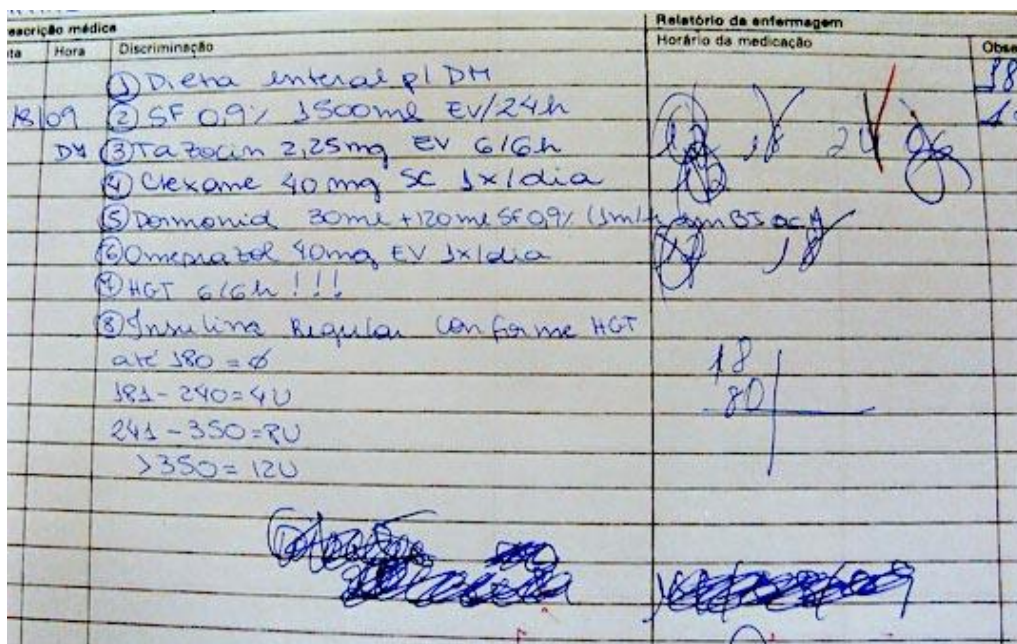 escrição médica
Relatório da enfermagem
ta Hora Discriminação
Horário da medicação
Obse
① Dieta enteral p/ DM
18
18/09 ② SF 0,9% 1500ml EV/24h
③ Tazocin 2,25mg EV 6/6h
12 18 24 06
④ Clexane 40mg SC 1x/dia
⑤ Dormonid 30ml + 120ml SF 0,9% (1ml/h em BI ACM
⑥ Omeprazol 40mg EV 1x/dia
18
⑦ HGT 6/6h !!!
⑧ Insulina Regular conforme HGT
até 180 = ∅
18
181 - 240 = 4U
80
241 - 350 = 8U
>350 = 12U